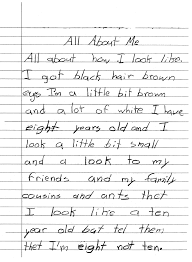 All About Me
All about how I look like.
I got black hair brown
eyes I'm a little bit brown
and a lot of white I have
eight years old and I
look a little bit small
and a look to my
friends and my family
cousins and ants thet
I look like a ten
year old bat tel them
thet I'm eight not ten.